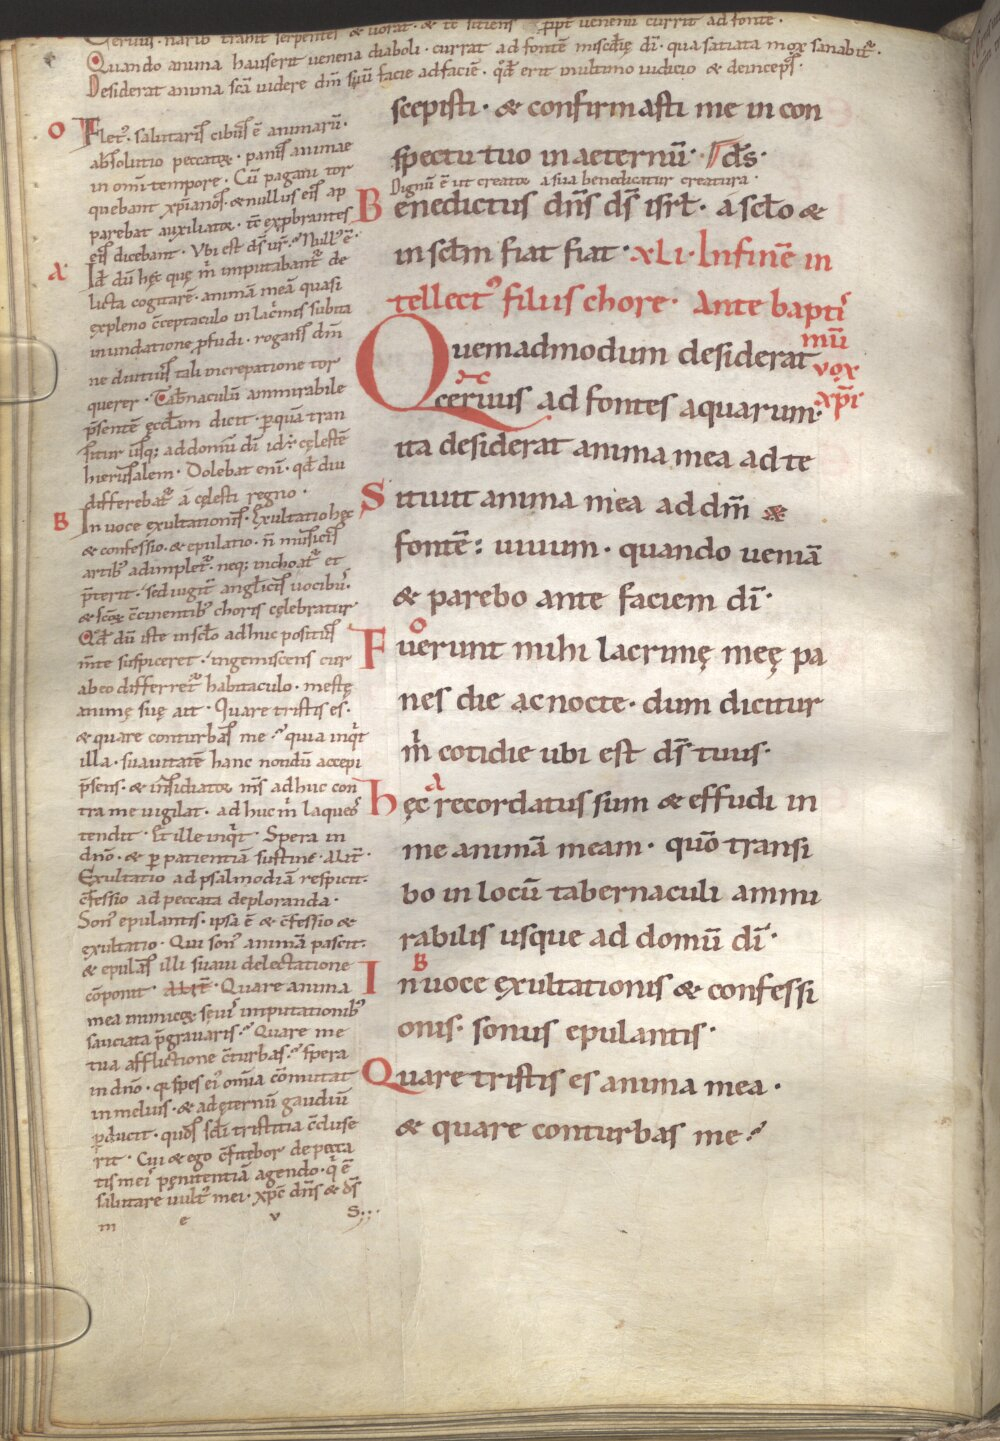 Ceruus · narib trahit serpentes & uorat · & te sitiens ppt uenenū currit ad fonte ·
Quando anima hauserit uenena diaboli · currat ad fontē miscdię dī · qua satiata mox sanabit᷑ ·
Desiderat anima scā uidere dm̄ suū facie ad faciē · qđ erit in ultimo iudicio & deinceps ·
O Flet᷒ · salutaris cibus ē animarū ·
absolutio peccatoꝝ · panis animae
in omī tempore · Cū pagani tor
quebant xp̄ianos · & nullus eis ap
parebat auxiliator · tē exprobrantes
eis dicebant · Vbi est ds̄ ur̄ · Null᷒ ē ·
A Id dū hęc quę m̄ imputabant᷑ de
licta cogitarē · animā meā quasi
ex pleno c̄ceptaculo in lacrimis subita
inundatione pfudi · rogans dm̄
ne diutius tali increpatione tor
querer · Tabnaculū ammirabile
p̄sentē ęcclām dicit · p quā tran
situr usq; ad domū dī id ÷ cęlestē
hierusalem · Dolebat enī · qđ diu
differebat᷑ a cęlesti regno ·
B In uoce exultationis · Exultatio hęc
& confessio · & epulatio · n̄ musicis
artib᷒ adimplet᷑ · neq; inchoat᷑ et
p̄terit · sed iugit̄ anglicis uocib᷒ ·
& scoꝝ c̄cinentib᷒ choris cęlebratur
Qđ dū iste in sclo adhuc positus
m̄te suspiceret · ingemiscens cur
ab eo differret᷑ habitaculo · mestę
animę suę ait · Quare tristis es ·
& quare conturbas me · quia inqt
illa · suauitatē hanc nondū accepi
p̄sens · & insidiator m̄s adhuc con
tra me uigilat · adhuc m̄ laqueos
tendit · Et ille inqt · Spera in
dnō · & p patientiā sustine · Alit̄ ·
Exultatio ad psalmodiā respicit ·
c̄fessio ad peccata deploranda ·
Son᷒ epulantis · ipsa ē & c̄fessio &
exultatio · Qui son᷒ animā pascit ·
& epulas illi suaui delectatione
cōponit · Quare anima
mea inimicoꝝ sęuis imputationib᷒
sauciata p̄grauaris · Quare me
tua afflictione c̄turbas · spera
in dnō · q spes ei᷒ omīa cōmutat
in melius · & ad ęternū gaudiū
pducit · quos scdi tristitia c̄cluse
rit · Cui & ego c̄fitebor de pecca
tis meis pęnitentiā agendo · q ē
salutare uult᷒ mei · xp̄c dn̄s & ds̄
m e v s...
scepisti · & confirmasti me in con
spectu tuo in aeternū · ds̄ ·
Dignū ē ut creator a sua benedicatur creatura ·
Benedictus dn̄s ds̄ isrł · a sclo &
in sclm fiat fiat · XLI · In finē in
tellect᷒ filiis chore · Ante bapti
mū
Quemadmodum desiderat vox
ceruus ad fontes aquarum · xp̄i
ita desiderat anima mea ad te
Sitiuit anima mea ad dm̄
fontē : uiuum · quando ueniā
& parebo ante faciem dī ·
Fuerunt mihi lacrimę meę pa
nes die ac nocte · dum dicitur
m̄ cotidie ubi est ds̄ tuus ·
Hęc recordatus sum & effudi in
me animā meam · quō transi
bo in locū tabernaculi ammi
rabilis usque ad domū dī ·
In uoce exultationis & confessi
onis · sonus epulantis ·
Quare tristis es anima mea ·
& quare conturbas me ·